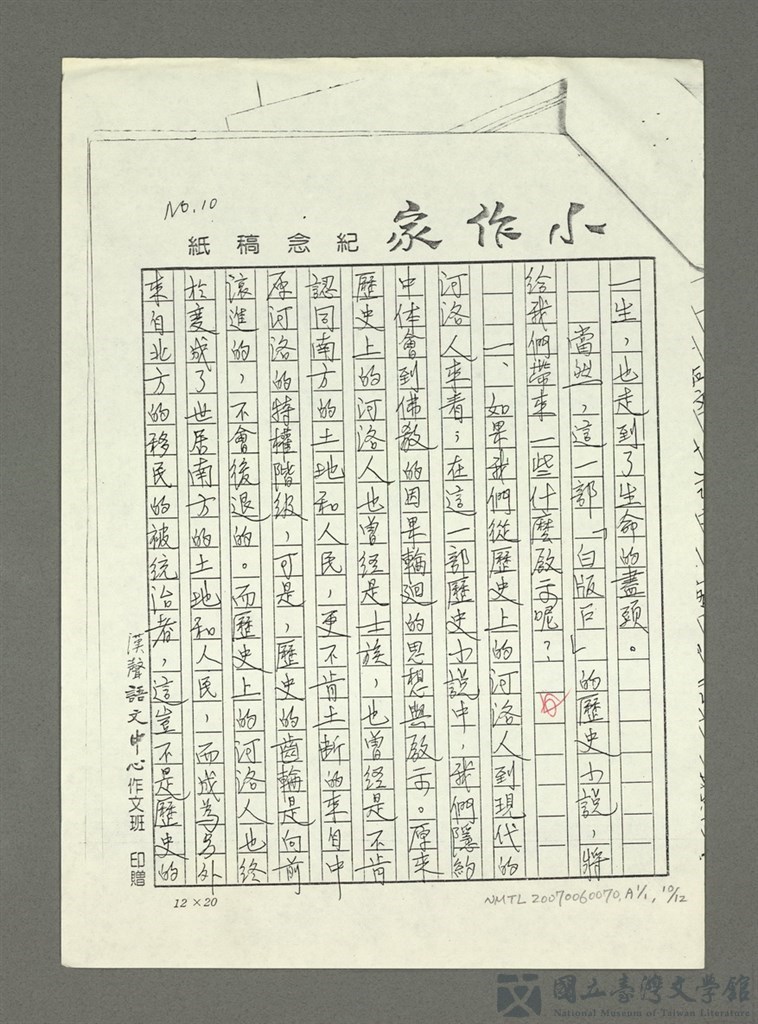 No.10
小作家 紀念稿紙
一生，也走到了生命的盡頭。
當然，這一部「白版戶」的歷史小說，將
給我們帶來一些什麼啟示呢？
一、如果我們從歷史上的河洛人到現代的
河洛人來看；在這一部歷史小說中，我們隱約
中体會到佛教的因果輪迴的思想與啟示。原來
歷史上的河洛人也曾經是士族，也曾經是不肯
認同南方的土地和人民，更不肯土斷的來自中
原河洛的特權階級，可是，歷史的齒輪是向前
滾進的，不會後退的。而歷史上的河洛人也終
於變成了世居南方的土地和人民，而成為另外
來自北方的移民的被統治者，這豈不是歷史的
漢聲語文中心作文班 印贈
12×20
NMTL 20070060070.A1/1, 10/12
國立臺灣文學館
National Museum of Taiwan Literature